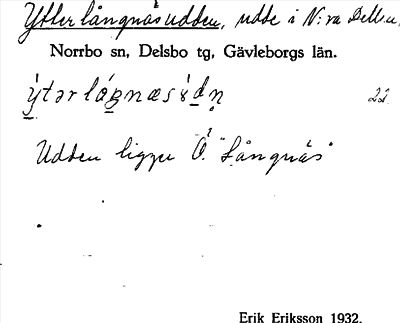 Ytterlångnäsudden, udde i N:ra Dellen
Norrbo sn, Delsbo tg, Gävleborgs län.
22.
Udden ligger Ö. "Långnäs"
Erik Eriksson 1932.